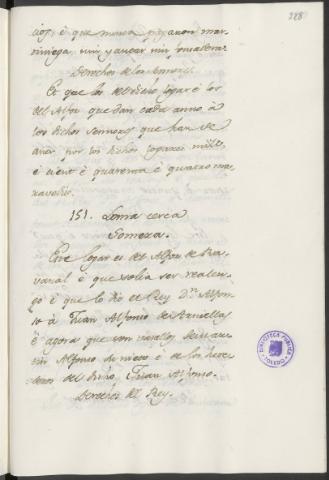 188
cios, é que nunca pagaron mar
tiniega, nin yantar nin fonsadera.
Derechos de los señores.
Et que los del dicho logar é los
del Alfoz que dan cada anno á
los dichos sennores que han de
aver por los dichos logares mill,
é ciento é quarenta é quatro ma
ravedís.
151. Loma cerca
Somera.
Este logar es del Alfoz de
é que solia ser realen
go é que lo dió el Rey Dn. Alfon
so á Juan Alfonso de
é agora que son vasallos de
Alfonso de nieto é de los here
deros del dicho Juan Alfonso.
Derechos del Rey.
BIBLIOTECA PUBLICA
TOLEDO